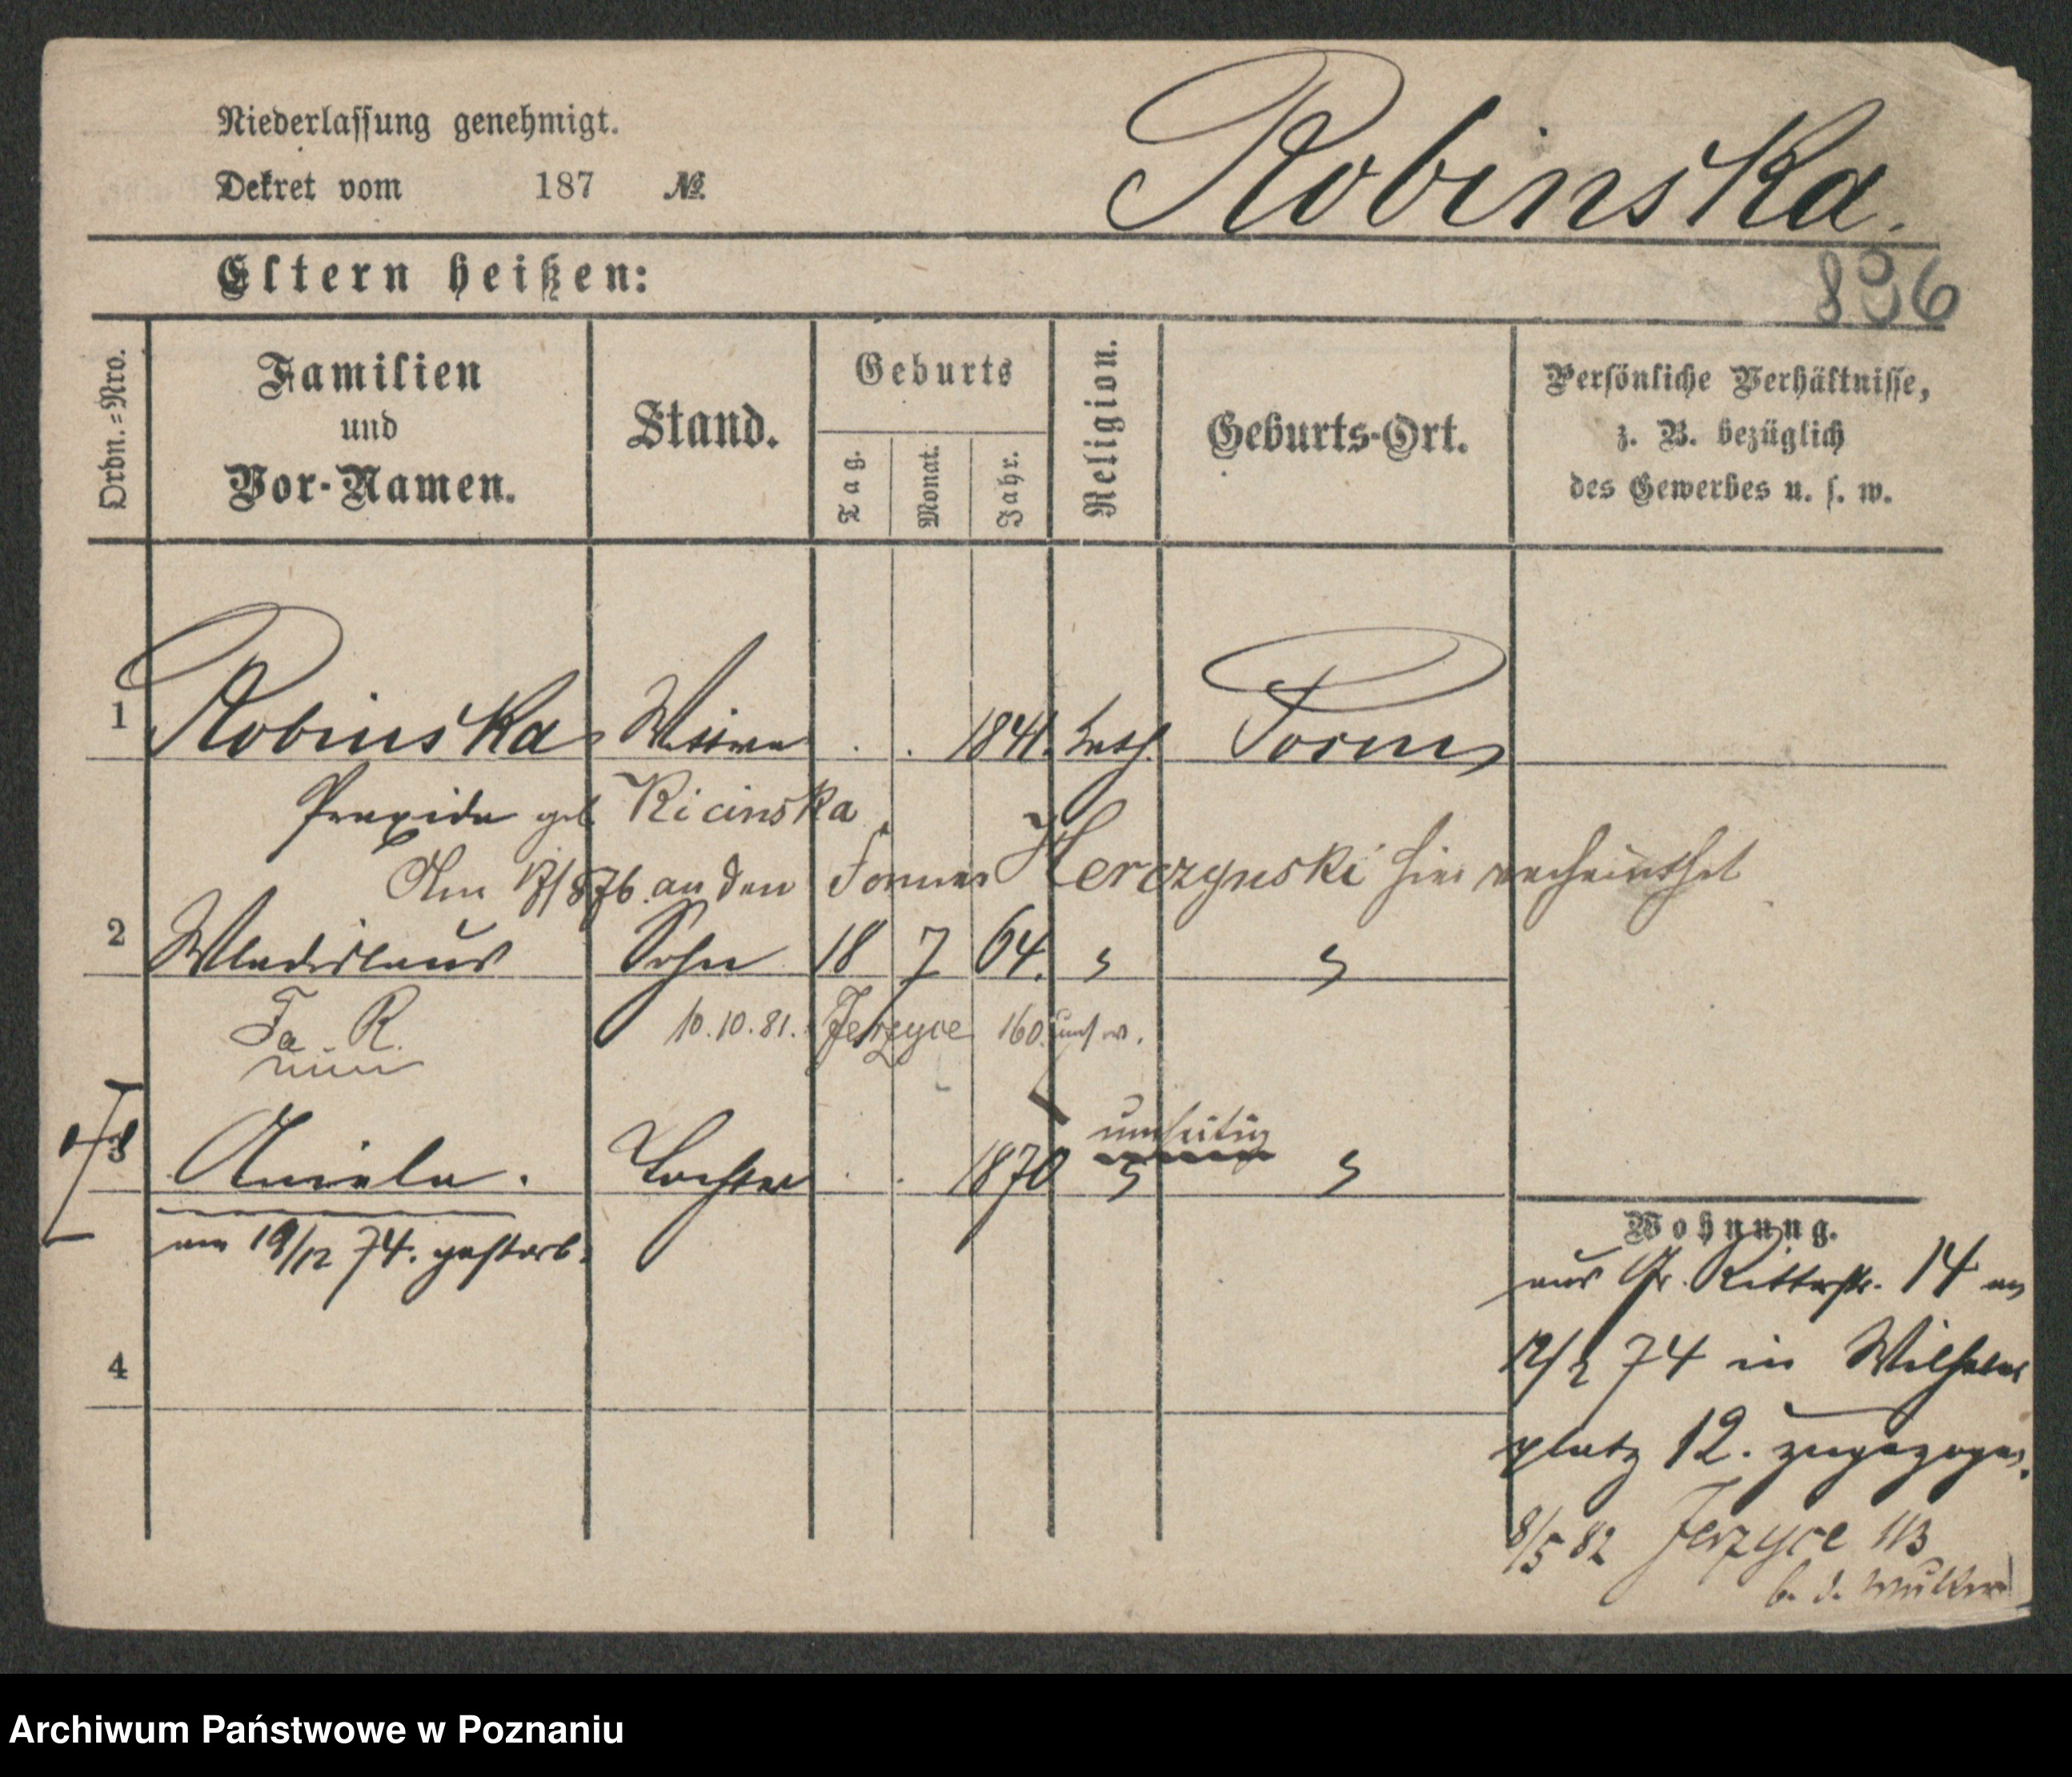 Niederlassung genehmigt.
Dekret vom 187 №
Robinska.
Eltern heißen:
836
Ordn.=Nro.
Familien
und
Vor-Namen.
Stand.
Geburts
Tag.
Monat.
Jahr.
Religion.
Geburts-Ort.
Persönliche Verhältnisse,
z. B. bezüglich
des Gewerbes u. s. w.
1 Robinska Wittwe . . 1841. kath. Posen
Praxida geb Kicinska
Am an den Herczynski hier verheirathet
2 Wladislaus Sohn 18 7 64. " "
Fa. R.
10.10.81. Jerzyce 160.
umseitig
3 Aniela. Tochter . . 1870 " "
am 19/12 74. gestorb.
4
Wohnung.
aus Gr. Ritterstr. 14 am
12/2 74 in Wilhelms
platz 12. zugezogen.
8/5 82 Jerzyce 113
b. d. Mutter
Archiwum Państwowe w Poznaniu